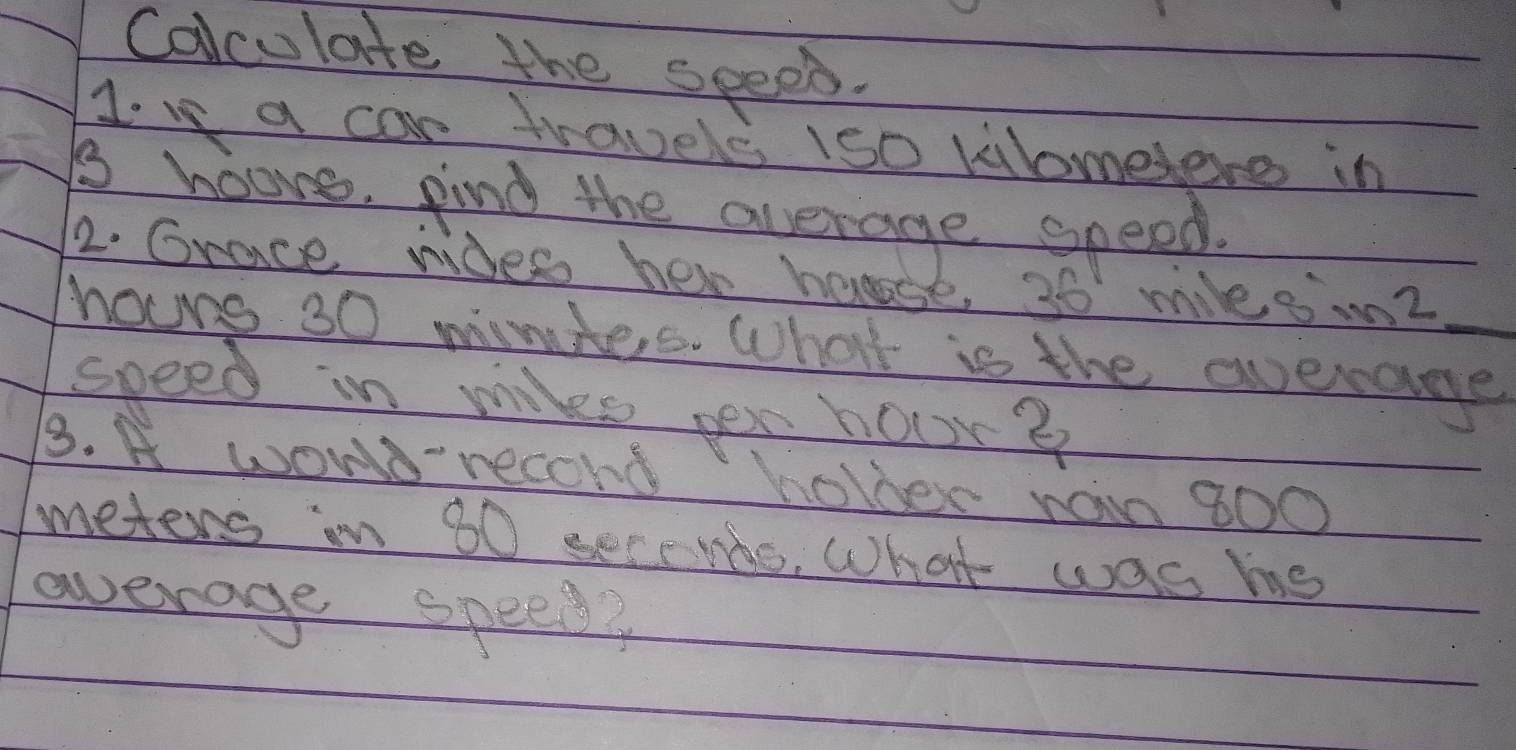 Calculate the speed.
1. if a car travels 150 kilometers in
3 hours. find the average speed.
2. Grace rides her horse, 36 miles in 2
hours 30 minutes. What is the average
speed in miles per hour?
3. A world-record holder ran 800
meters in 80 seconds. What was his
average speed?